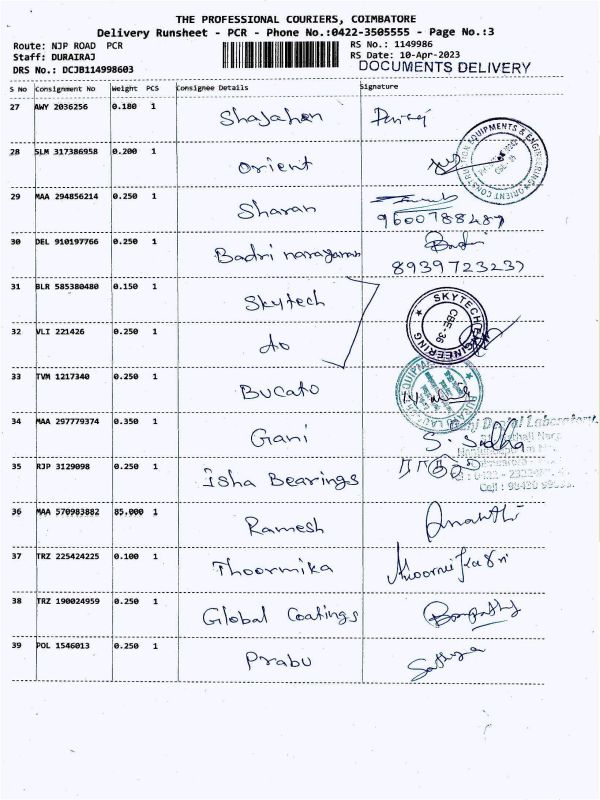 THE PROFESSIONAL COURIERS, COIMBATORE
Delivery Runsheet - PCR - Phone No.:0422-3505555 - Page No.:3
Route: NJP ROAD PCR
RS No.: 1149986
Staff: DURAIRAJ
RS Date: 10-Apr-2023
DRS No.: DCJB114998603
DOCUMENTS DELIVERY
S No Consignment No Weight PCS Consignee Details Signature
27 AWY 2036256 0.180 1 Shajahan
28 SLM 317386958 0.200 1 Orient
29 MAA 294856214 0.250 1 Sharan
9600788487
30 DEL 910197766 0.250 1 Badri narayanan Badri
8939723237
31 BLR 585380480 0.150 1 Skytech
SKYTECH ENGINEERING
CBE-36
32 VLI 221426 0.250 1 do
33 TVM 1217340 0.250 1 Bucato
34 MAA 297779374 0.350 1 Gani S. Sudha
Dental Laboratory
35 RJP 3129098 0.250 1 Isha Bearings
36 MAA 570983882 85.000 1 Ramesh
37 TRZ 225424225 0.100 1 Thoormika
38 TRZ 190024959 0.250 1 Global Coatings
39 POL 1546013 0.250 1 Prabu Sathya